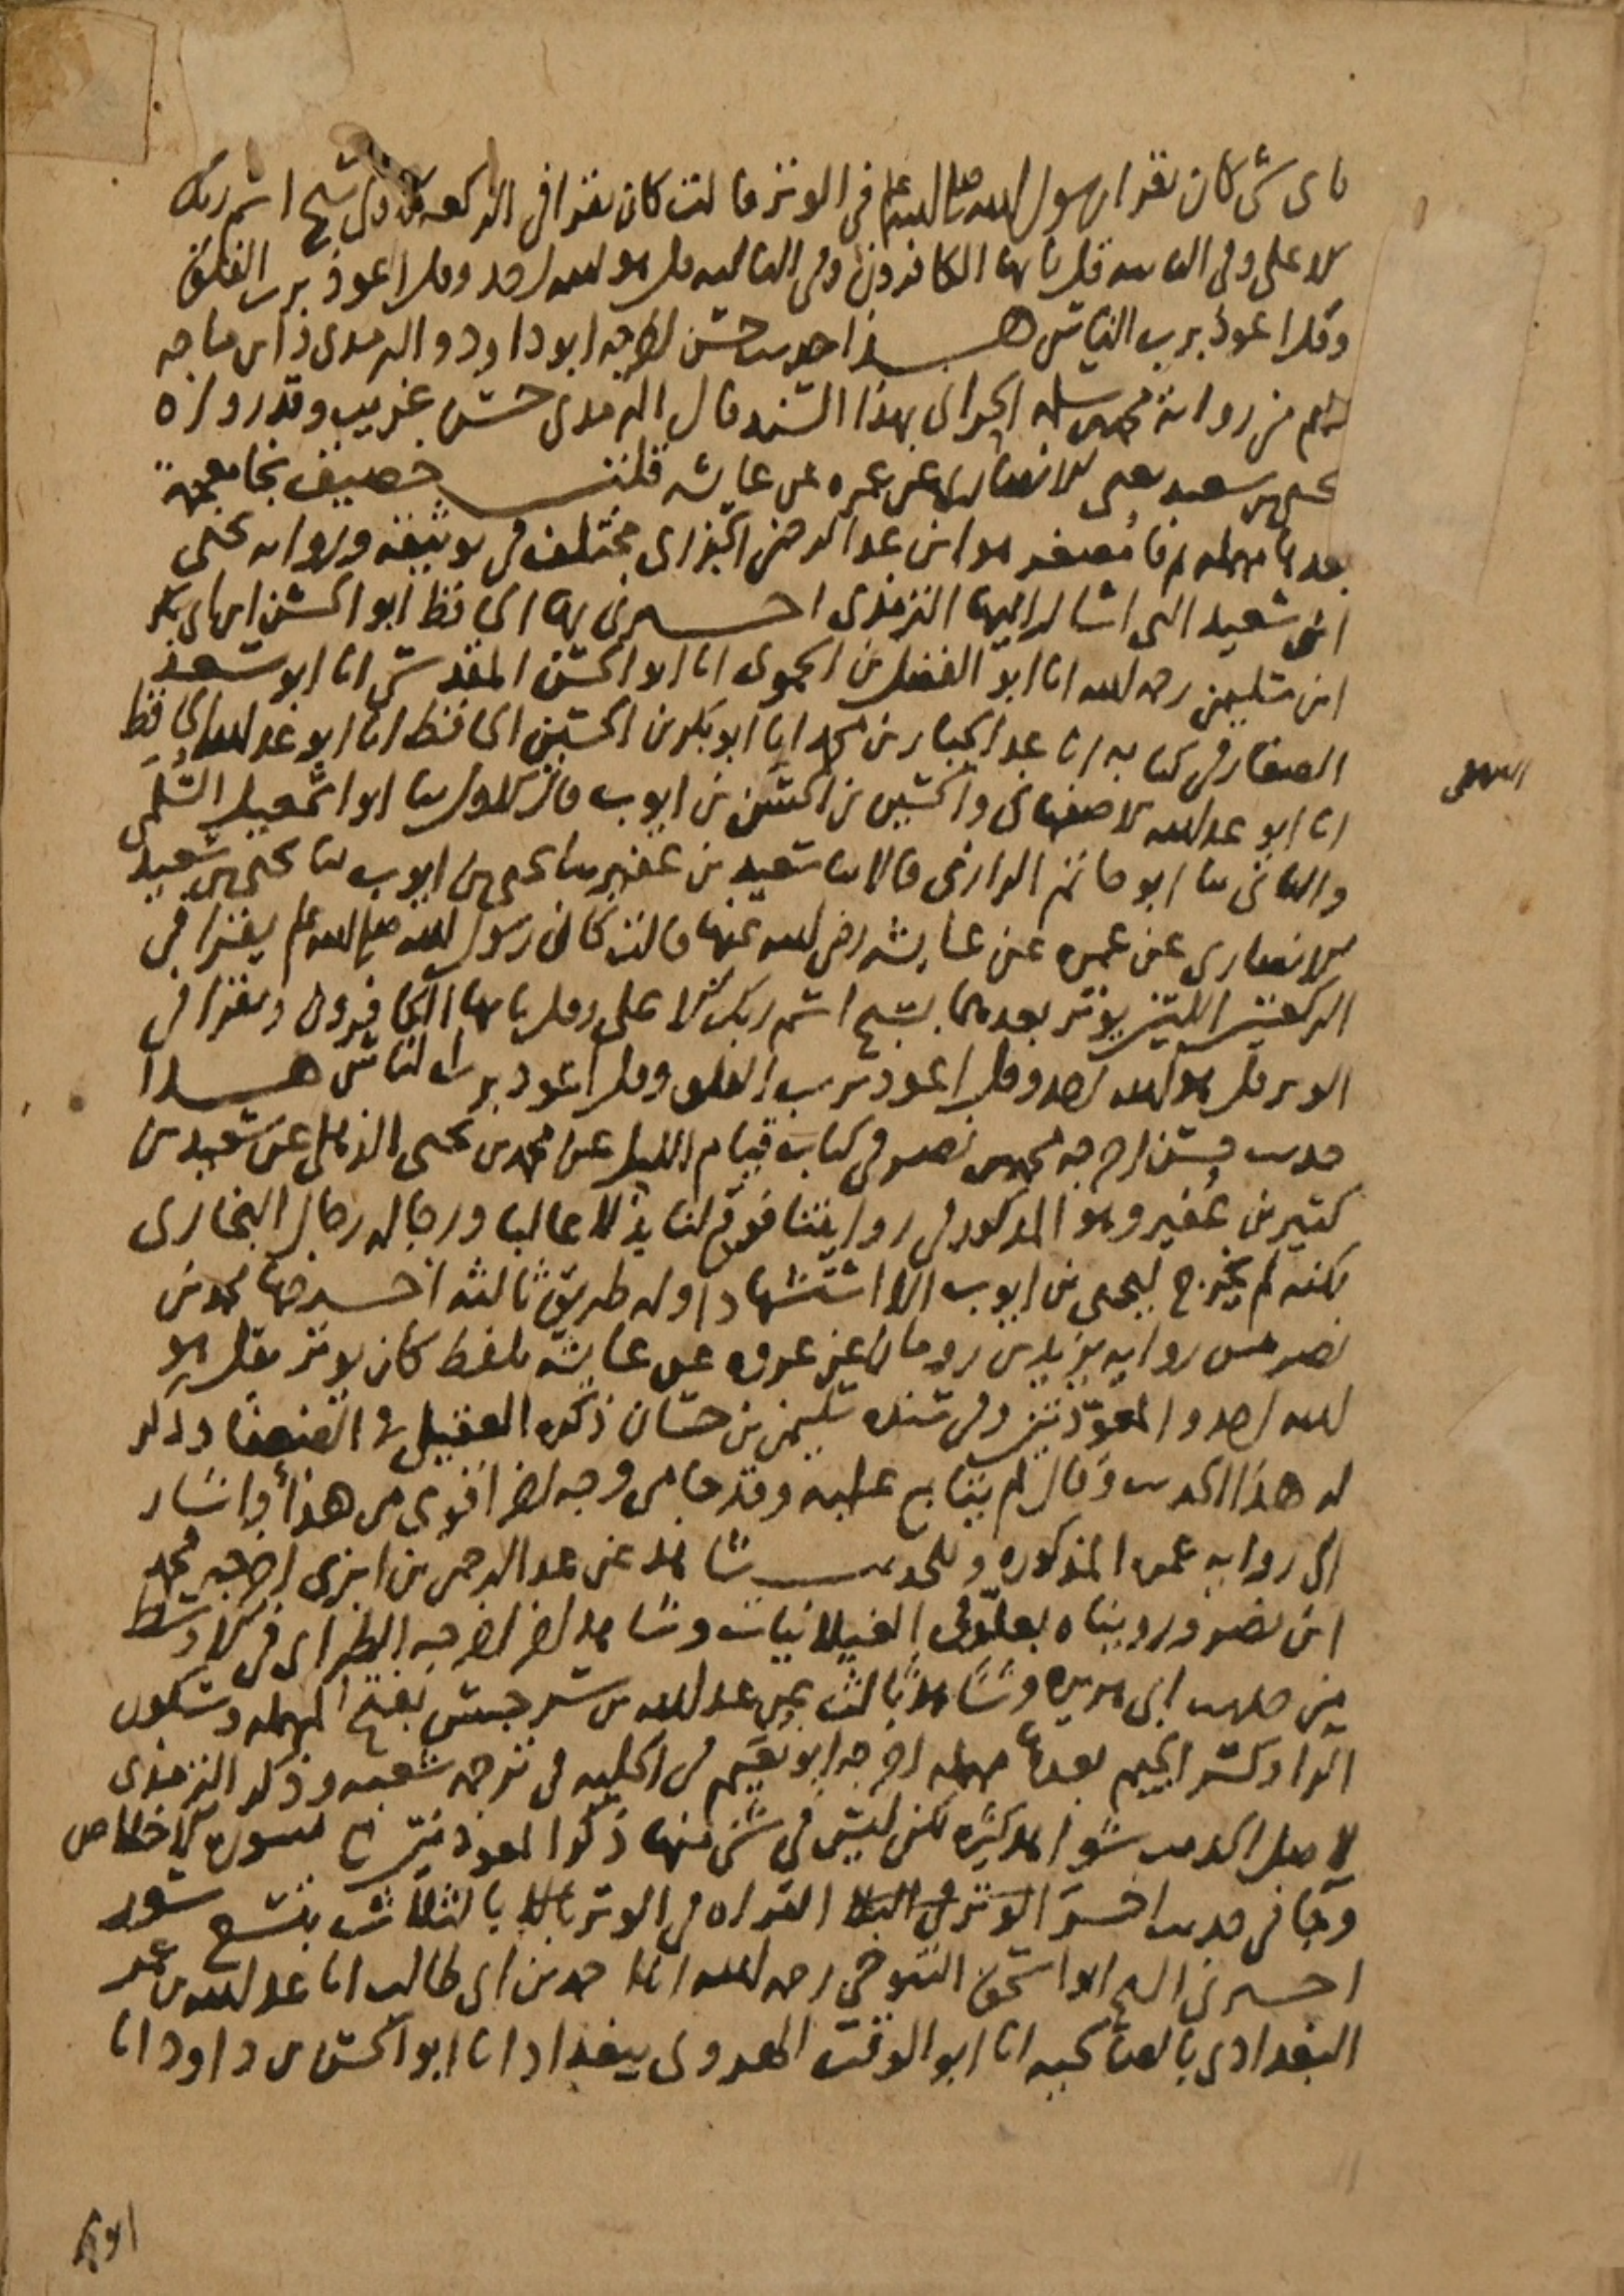 باى شى كان يقرا رسول الله صلى الله عليه وسلم فى الوتر قالت كان يقرا فى الركعه الاولى بسبح اسم ربك
الاعلى وفى الثانيه قل يا ايها الكافرون وفى الثالثه قل هو الله احد وقل اعوذ برب الفلق
وقل اعوذ برب الناس هذا حديث حسن اخرجه ابو داود والترمذى وابن ماجه
من رواية محمد بن سلمه الحرانى بهذا السند قال الترمذى حسن غريب وقد رواه
يحيى بن سعيد يعنى الانصارى عن عمره عن عايشه قلت خصيف بخا معجمة
بعدها مهمله ثم فا مصغر هو ابن عبد الرحمن الجزرى مختلف فى توثيقه ورواية يحيى
ابن سعيد التى اشار اليها الترمذى اخبرنى بها الحافظ ابو الحسن ابن ابى بكر
ابن سليمن رحمه الله انا ابو الفضل بن الحموى انا ابو الحسن المقدسى انا ابو سعد
الصفار فى كتابه انا عبد الجبار بن محمد انا ابو بكر بن الحسين الحافظ انا ابو عبد الله الحافظ
البيهقى
انا ابو عبد الله الاصفهانى والحسين بن الحسن بن ايوب قال الاول ثنا ابو اسمعيل السلمى
والثانى ثنا ابو حاتم الرازى قالا ثنا سعيد بن عفير ثنا يحيى بن ايوب ثنا يحيى بن سعيد
الانصارى عن عمره عن عايشه رضى الله عنها قالت كان رسول الله صلى الله عليه وسلم يقرا فى
الركعتين اللتين يوتر بعدهما بسبح اسم ربك الاعلى وقل يا ايها الكافرون ويقرا فى
الوتر قل هو الله احد وقل اعوذ برب الفلق وقل اعوذ برب الناس هذا
حديث حسن اخرجه محمد بن نصر فى كتاب قيام الليل عن محمد بن يحيى الذهلى عن سعيد بن
كثير بن عفير وهو المذكور فى روايتنا فوقع لنا بدلا عاليا ورجاله رجال البخارى
لكنه لم يخرج ليحيى بن ايوب الا استشهادا وله طريق ثالثه اخرجها محمد بن
نصر من روايه يزيد بن رومان عن عروه عن عايشه بلفظ كان يوتر بقل هو
الله احد والمعوذتين وفى سنده سليمن بن حسان ذكره العقيلى فى الضعفا وذكر
له هذا الحديث وقال لم يتابع عليه وقد جا من وجه اخر اقوى من هذا واشار
الى روايه عمره المذكوره وللحديث شاهد عن عبد الرحمن بن ابزى اخرجه محمد
ابن نصر ورويناه بعلو فى الغيلانيات وشاهد اخر اخرجه الطبرانى فى الاوسط
من حديث ابى هريره وشاهد ثالث عن عبد الله بن سرجس بفتح المهمله وسكون
الرا وكسر الجيم بعدها مهمله اخرجه ابو نعيم فى الحليه فى ترجمه شعبه وذكر الترمذى
لاصل الحديث شواهد كثيره لكن ليس فى شى منها ذكر المعوذتين مع سوره الاخلاص
وجا فى حديث اخر الوتر فى القراه فى الوتر بالثلاث بتسع سور
اخبرنى الشيخ ابو اسحق التنوخى رحمه الله انا احمد بن ابى طالب انا عبد الله بن عمر
البغدادى بالصالحيه انا ابو الوقت الهروى ببغداد انا ابو الحسن بن داود انا